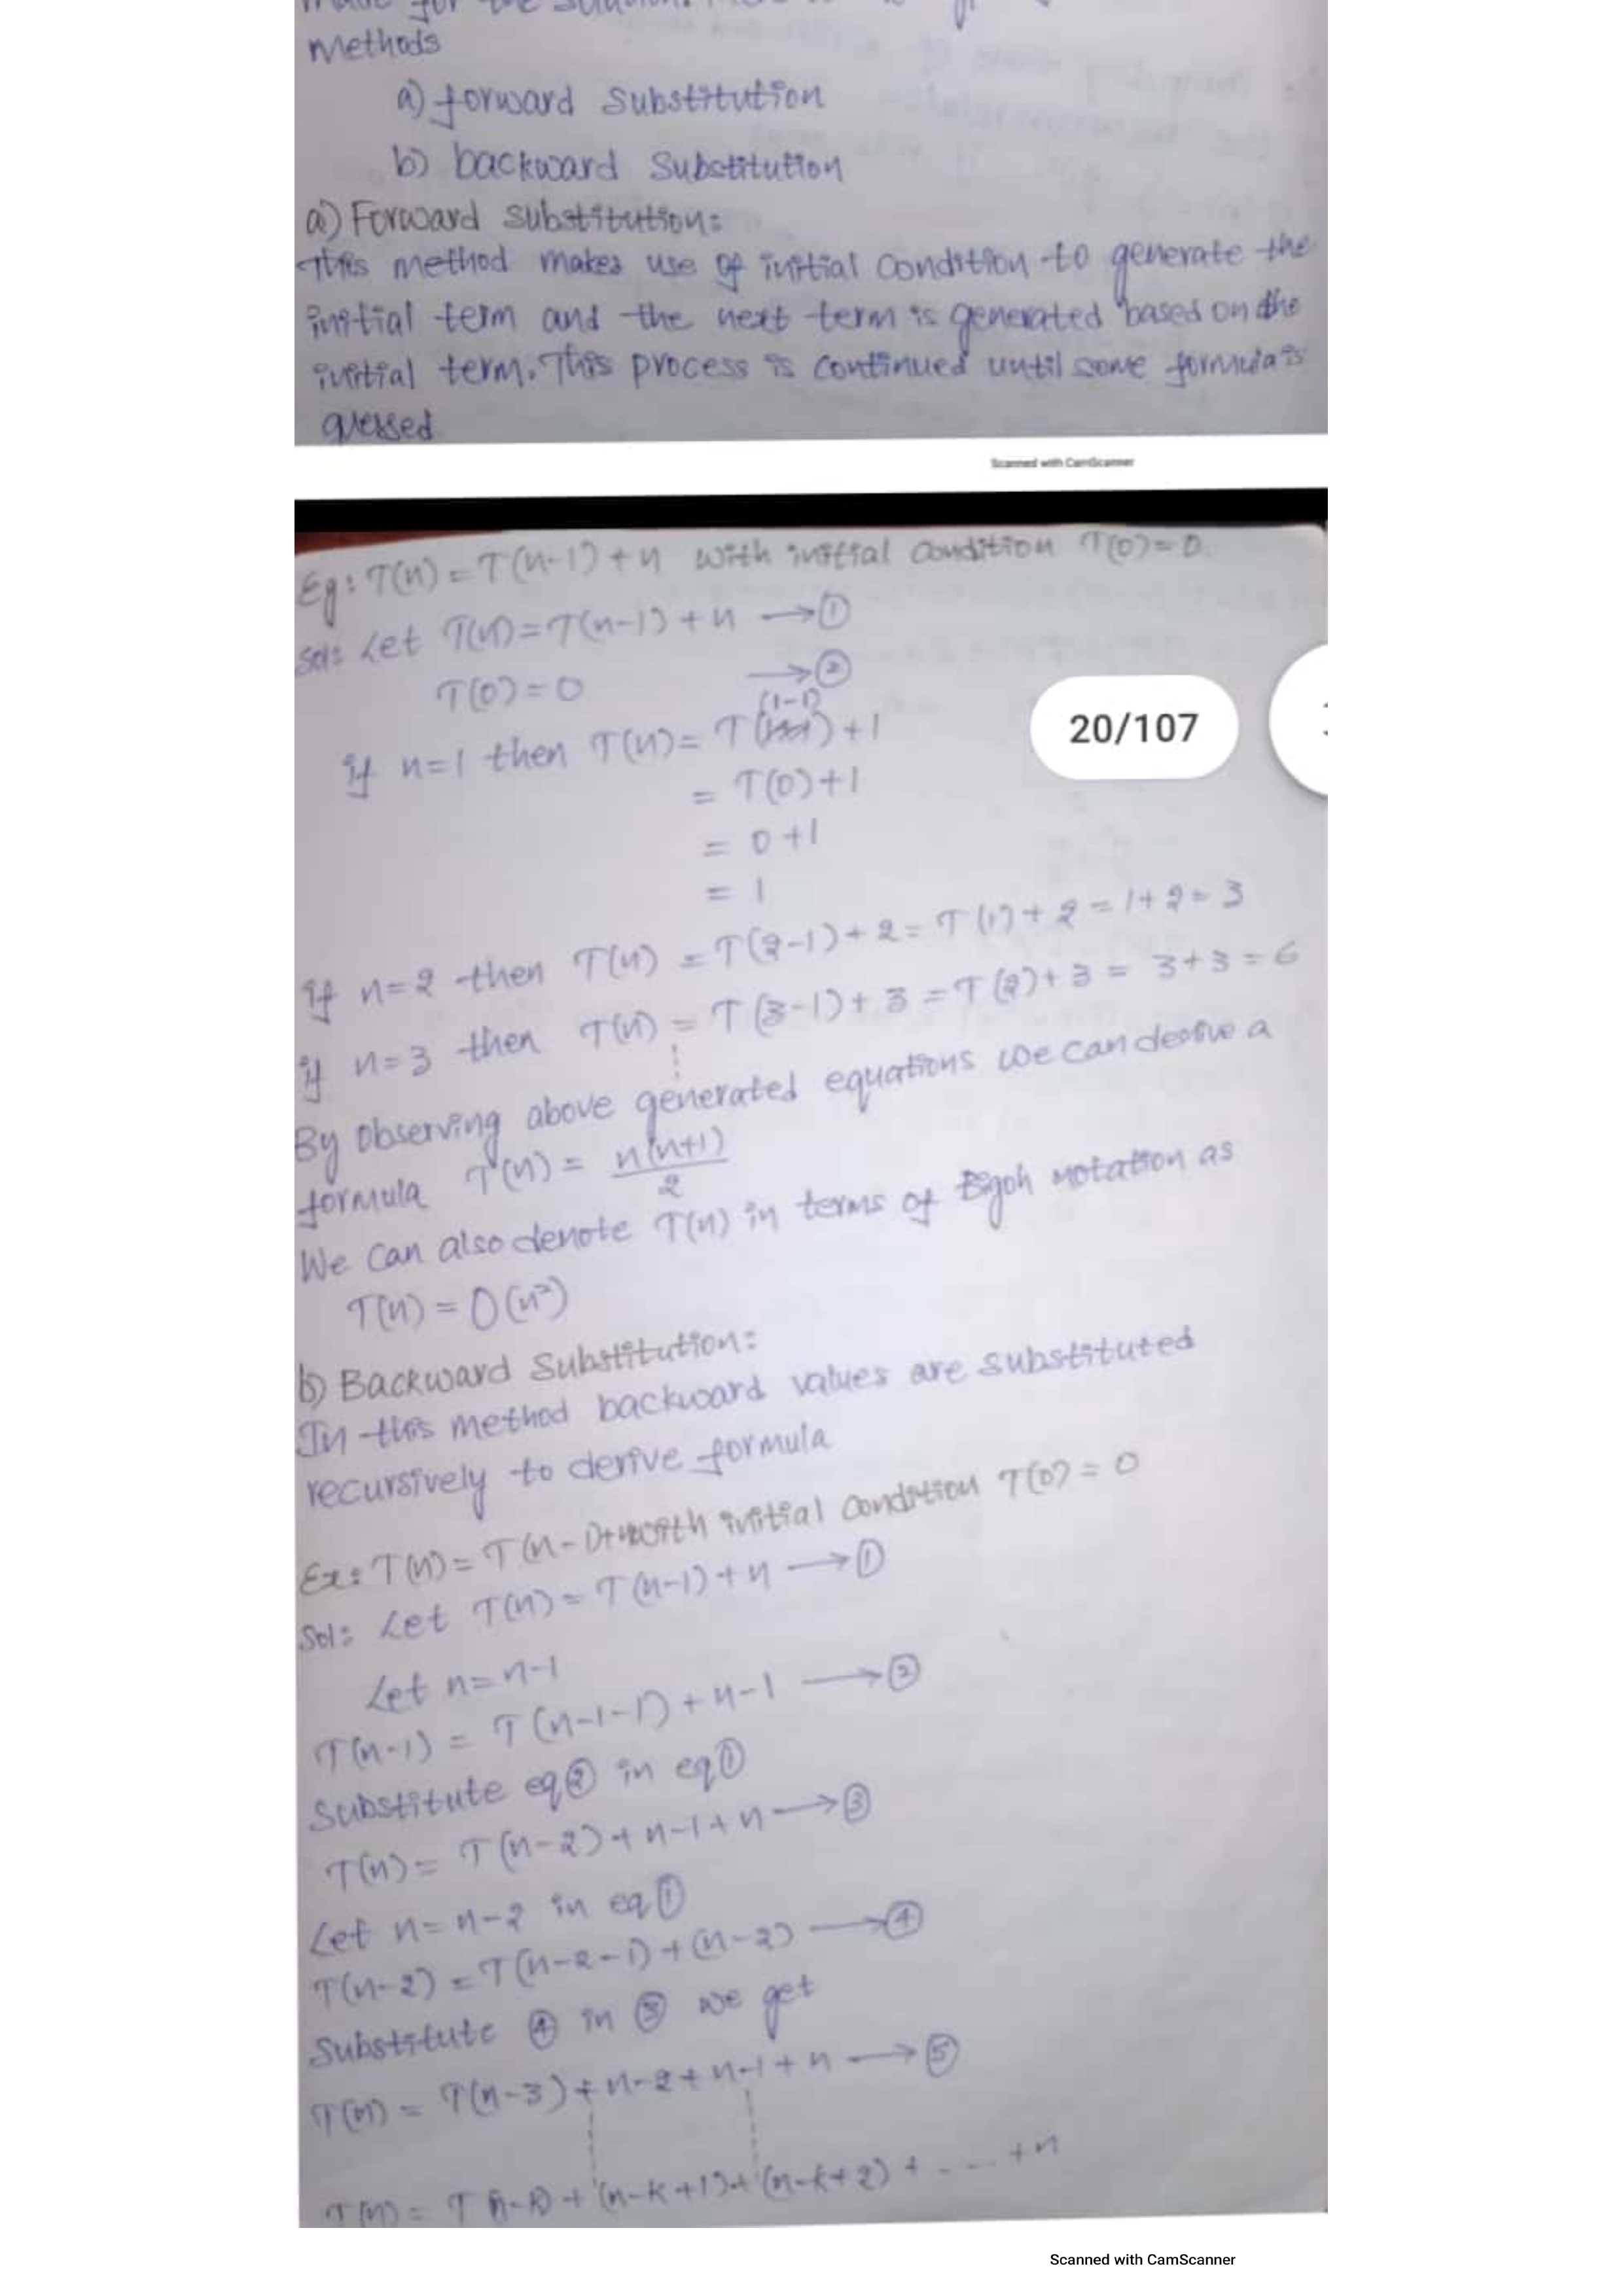 methods
a) forward substitution
b) backward substitution
a) Forward substitution:
This method makes use of initial condition to generate the
initial term and the next term is generated based on the
initial term. This process is continued until some formula is
guessed
Scanned with CamScanner
Eg: T(n) = T(n-1) + n with initial condition T(0) = 0.
Sol: Let T(n) = T(n-1) + n → ①
T(0) = 0 → ②
(1-1)
if n=1 then T(n) = T( ) + 1
20/107
= T(0)+1
= 0+1
= 1
if n=2 then T(n) = T(2-1) + 2 = T(1) + 2 = 1+2 = 3
if n=3 then T(n) = T(3-1) + 3 = T(2) + 3 = 3+3 = 6
By observing above generated equations we can derive a
formula T(n) = n(n+1)
2
We can also denote T(n) in terms of Bigoh notation as
T(n) = O(n²)
b) Backward substitution:
In this method backward values are substituted
recursively to derive formula
Ex: T(n) = T(n-1)+n with initial condition T(0) = 0
Sol: Let T(n) = T(n-1) + n → ①
Let n = n-1
T(n-1) = T(n-1-1) + n-1 → ②
Substitute eq② in eq①
T(n) = T(n-2) + n-1 + n → ③
Let n = n-2 in eq①
T(n-2) = T(n-2-1) + (n-2) → ④
Substitute ④ in ③ we get
T(n) = T(n-3) + n-2 + n-1 + n → ⑤
T(n) = T(n-k) + (n-k+1) + (n-k+2) + .... + n
Scanned with CamScanner